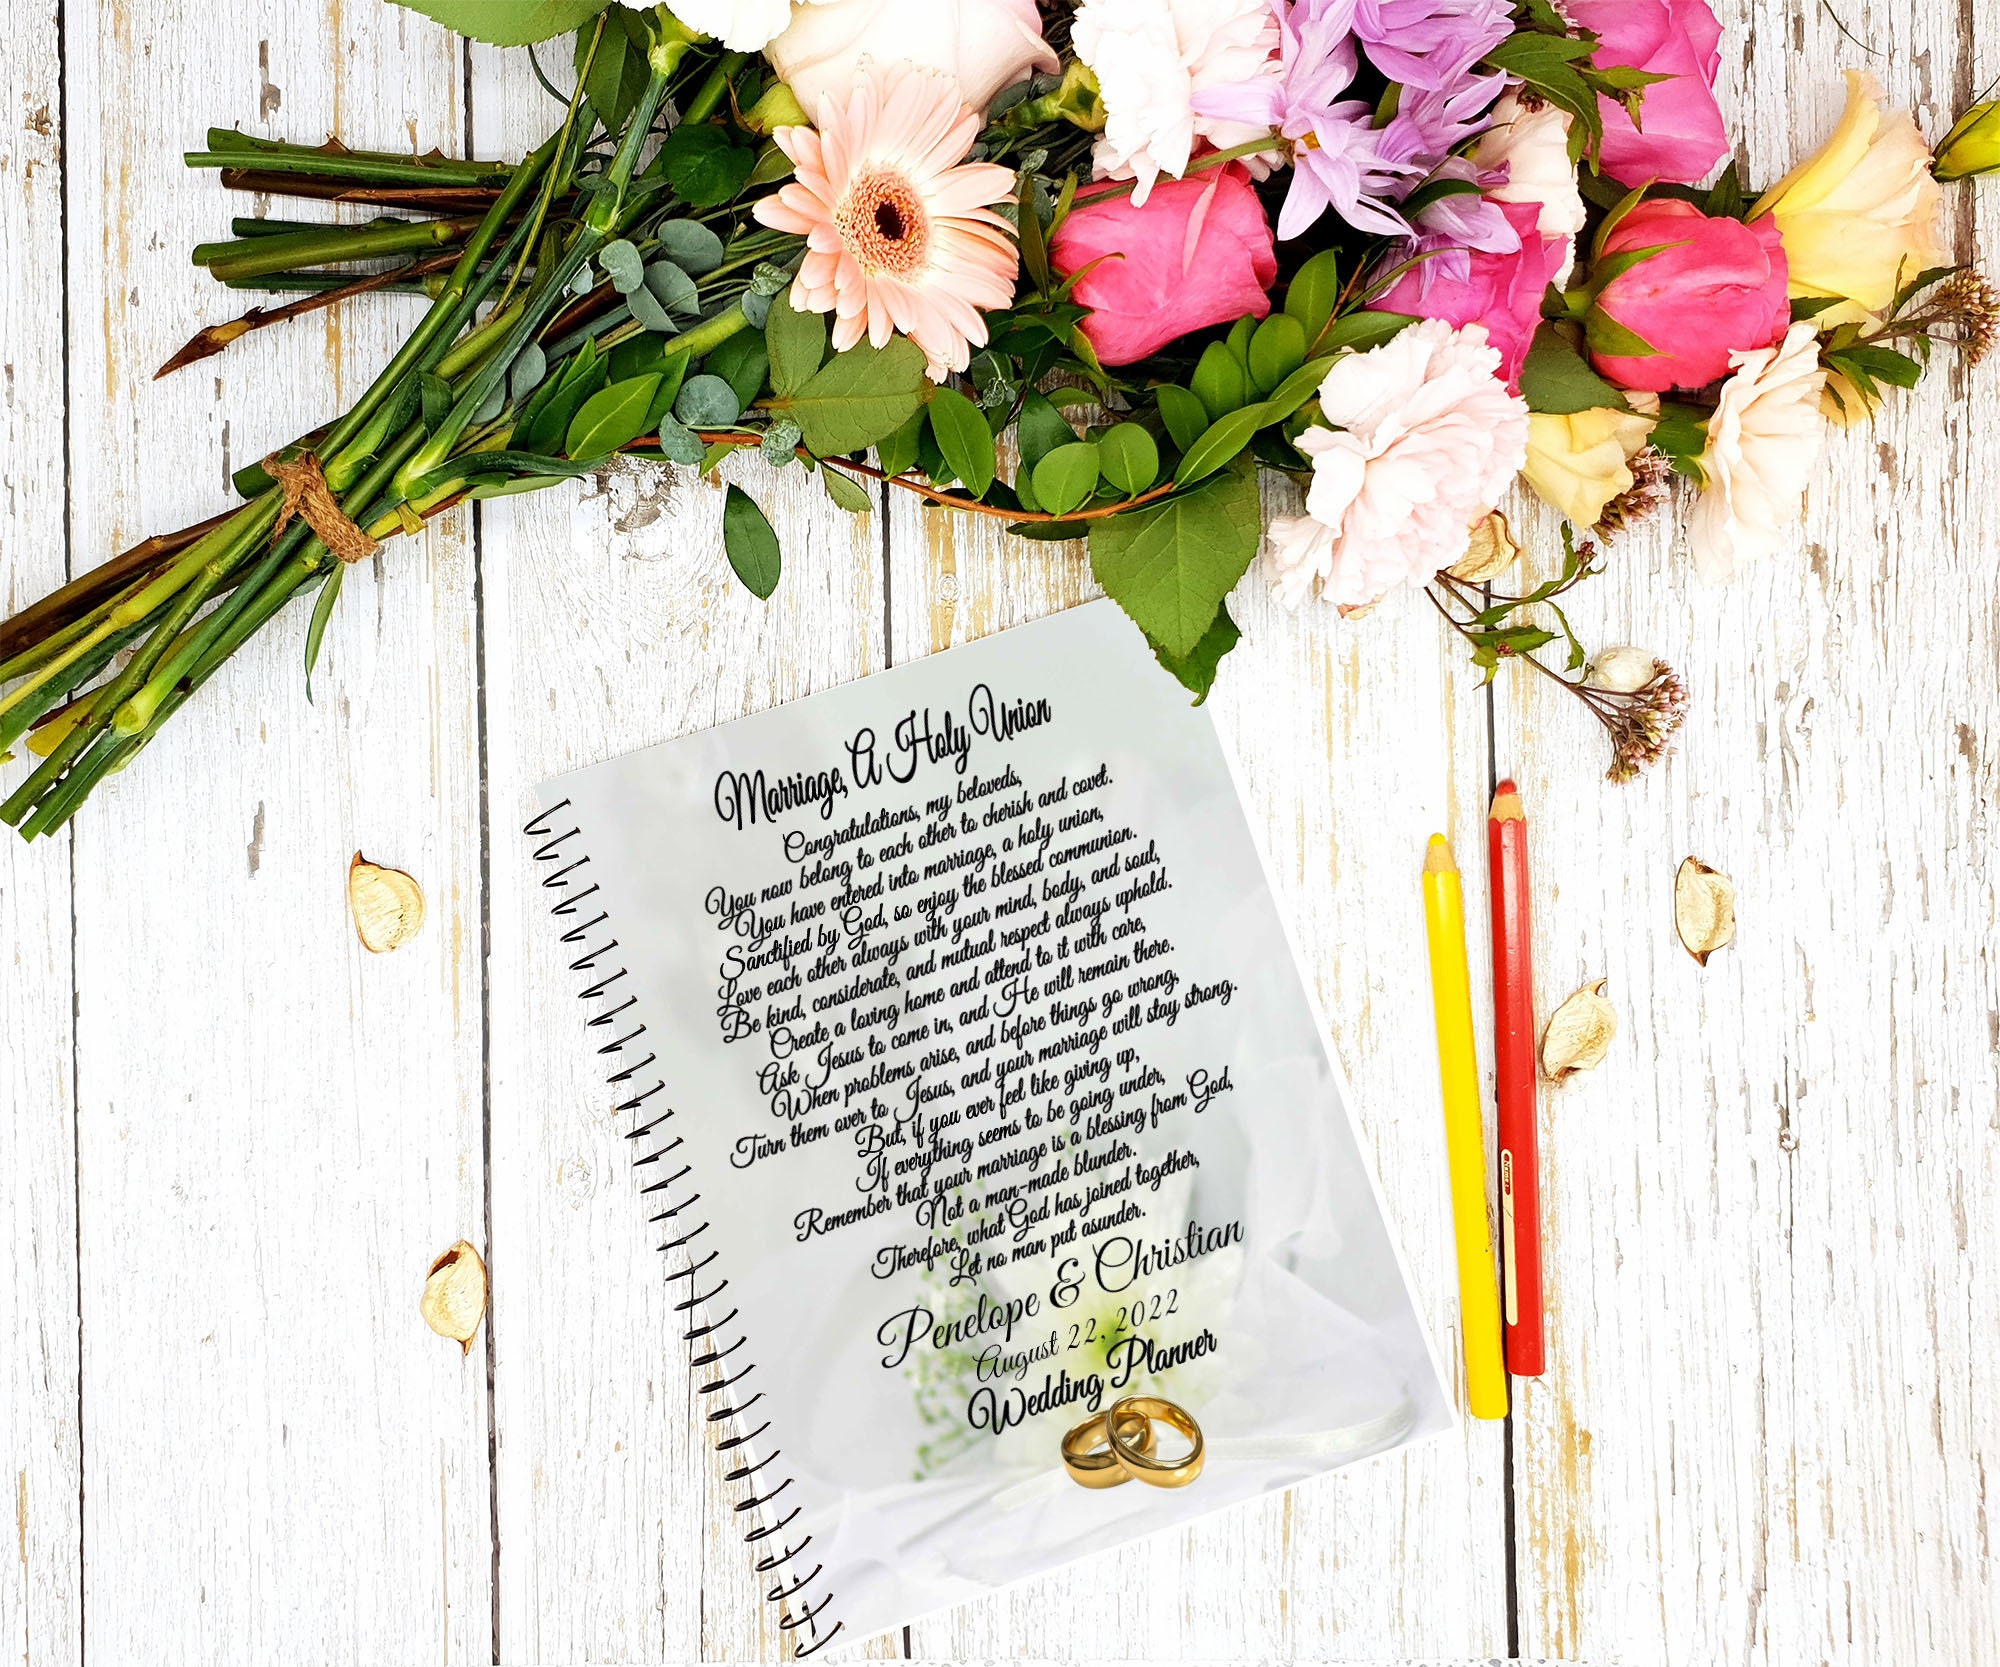 Marriage, A Holy Union
Congratulations, my beloveds,
You now belong to each other to cherish and covet.
You have entered into marriage, a holy union,
Sanctified by God, so enjoy the blessed communion.
Love each other always with your mind, body, and soul,
Be kind, considerate, and mutual respect always uphold.
Create a loving home and attend to it with care,
Ask Jesus to come in, and He will remain there.
When problems arise, and before things go wrong,
Turn them over to Jesus, and your marriage will stay strong.
But, if you ever feel like giving up,
If everything seems to be going under,
Remember that your marriage is a blessing from God,
Not a man-made blunder.
Therefore, what God has joined together,
Let no man put asunder.
Penelope & Christian
August 22, 2022
Wedding Planner